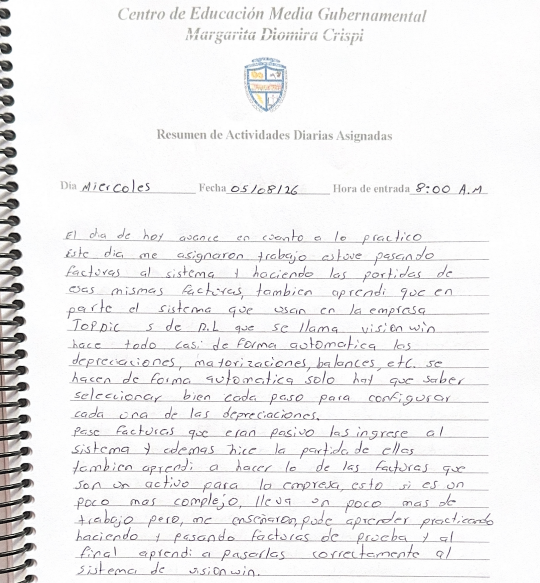 Centro de Educación Media Gubernamental
Margarita Diomira Crispi
Resumen de Actividades Diarias Asignadas
Dia Miercoles Fecha 05/08/26 Hora de entrada 8:00 A.M
El dia de hoy avance en cuanto a lo practico
Este dia me asignaron trabajo estuve pasando
facturas al sistema y haciendo las partidas de
esas mismas facturas, tambien aprendi que en
parte el sistema que usan en la empresa
TOPDIC s de R.L que se llama visionwin
hace todo casi de forma automatica las
depreciaciones, matorizaciones, balances, etc. se
hacen de forma automatica solo hay que saber
seleccionar bien cada paso para configurar
cada una de las depreciaciones.
Pase facturas que eran pasivo las ingrese al
sistema y ademas hice la partida de ellas
tambien aprendi a hacer lo de las facturas que
son un activo para la empresa, esto si es un
poco mas complejo, lleva un poco mas de
trabajo pero, me enseñaron, pude aprender practicando
haciendo y pasando facturas de prueba y al
final aprendi a pasarlas correctamente al
sistema de visionwin.